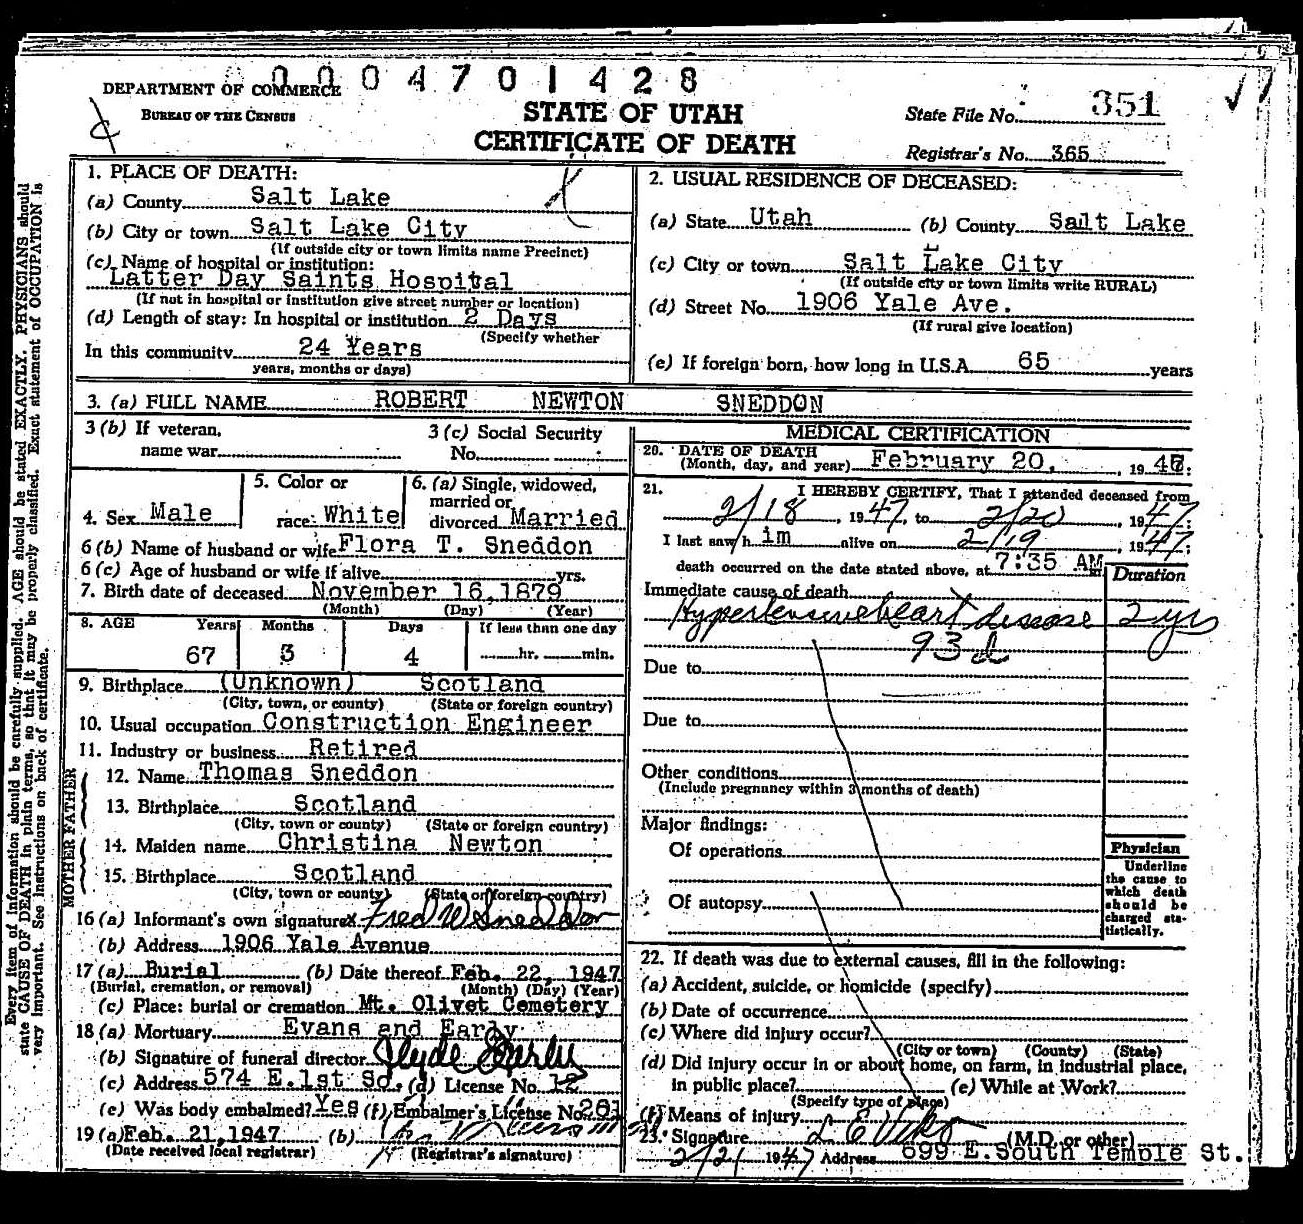 0004701428
DEPARTMENT OF COMMERCE
BUREAU OF THE CENSUS
STATE OF UTAH
CERTIFICATE OF DEATH
State File No. 351
Registrar's No. 365
Every item of information should be carefully supplied. AGE should be stated EXACTLY. PHYSICIANS should
state CAUSE OF DEATH in plain terms, so that it may be properly classified. Exact statement of OCCUPATION is
very important. See Instructions on back of certificate.
1. PLACE OF DEATH:
(a) County Salt Lake
(b) City or town Salt Lake City
(If outside city or town limits name Precinct)
(c) Name of hospital or institution:
Latter Day Saints Hospital
(If not in hospital or institution give street number or location)
(d) Length of stay: In hospital or institution 2 Days
(Specify whether
In this community 24 Years
years, months or days)
2. USUAL RESIDENCE OF DECEASED:
(a) State Utah (b) County Salt Lake
(c) City or town Salt Lake City
(If outside city or town limits write RURAL)
(d) Street No. 1906 Yale Ave.
(If rural give location)
(e) If foreign born, how long in U.S.A. 65 years
3. (a) FULL NAME ROBERT NEWTON SNEDDON
3 (b) If veteran, name war
3 (c) Social Security No.
4. Sex Male
5. Color or race: White
6. (a) Single, widowed, married or divorced Married
6 (b) Name of husband or wife Flora T. Sneddon
6 (c) Age of husband or wife if alive yrs.
7. Birth date of deceased November 16, 1879
(Month) (Day) (Year)
8. AGE Years Months Days If less than one day
67 3 4 hr. min.
9. Birthplace (Unknown) Scotland
(City, town, or county) (State or foreign country)
10. Usual occupation Construction Engineer
11. Industry or business Retired
FATHER
12. Name Thomas Sneddon
13. Birthplace Scotland
(City, town or county) (State or foreign country)
MOTHER
14. Maiden name Christina Newton
15. Birthplace Scotland
(City, town or county) (State or foreign country)
16 (a) Informant's own signature x Fred W Sneddon
(b) Address 1906 Yale Avenue
17 (a) Burial (b) Date thereof Feb. 22, 1947
(Burial, cremation, or removal) (Month) (Day) (Year)
(c) Place: burial or cremation Mt. Olivet Cemetery
18 (a) Mortuary Evans and Early
(b) Signature of funeral director Clyde Early
(c) Address 574 E.1st So. (d) License No. 12
(e) Was body embalmed? Yes (f) Embalmer's License No.
19 (a) Feb. 21, 1947 (b)
(Date received local registrar) (Registrar's signature)
MEDICAL CERTIFICATION
20. DATE OF DEATH
(Month, day, and year) February 20, , 1947:
21. I HEREBY CERTIFY, That I attended deceased from
2/18, 1947, to 2/20, 1947;
I last saw h im alive on 2/19, 1947;
death occurred on the date stated above, at 7:35 AM
Duration
Immediate cause of death
Hypertensive heart disease 2 yrs
93d
Due to
Due to
Other conditions
(Include pregnancy within 3 months of death)
Major findings:
Of operations
Of autopsy
Physician
Underline
the cause to
which death
should be
charged sta-
tistically.
22. If death was due to external causes, fill in the following:
(a) Accident, suicide, or homicide (specify)
(b) Date of occurrence
(c) Where did injury occur?
(City or town) (County) (State)
(d) Did injury occur in or about home, on farm, in industrial place,
in public place? (e) While at Work?
(Specify type of place)
(f) Means of injury
23. Signature L E Viko (M.D. or other)
2/21 1947 Address 699 E. South Temple St.